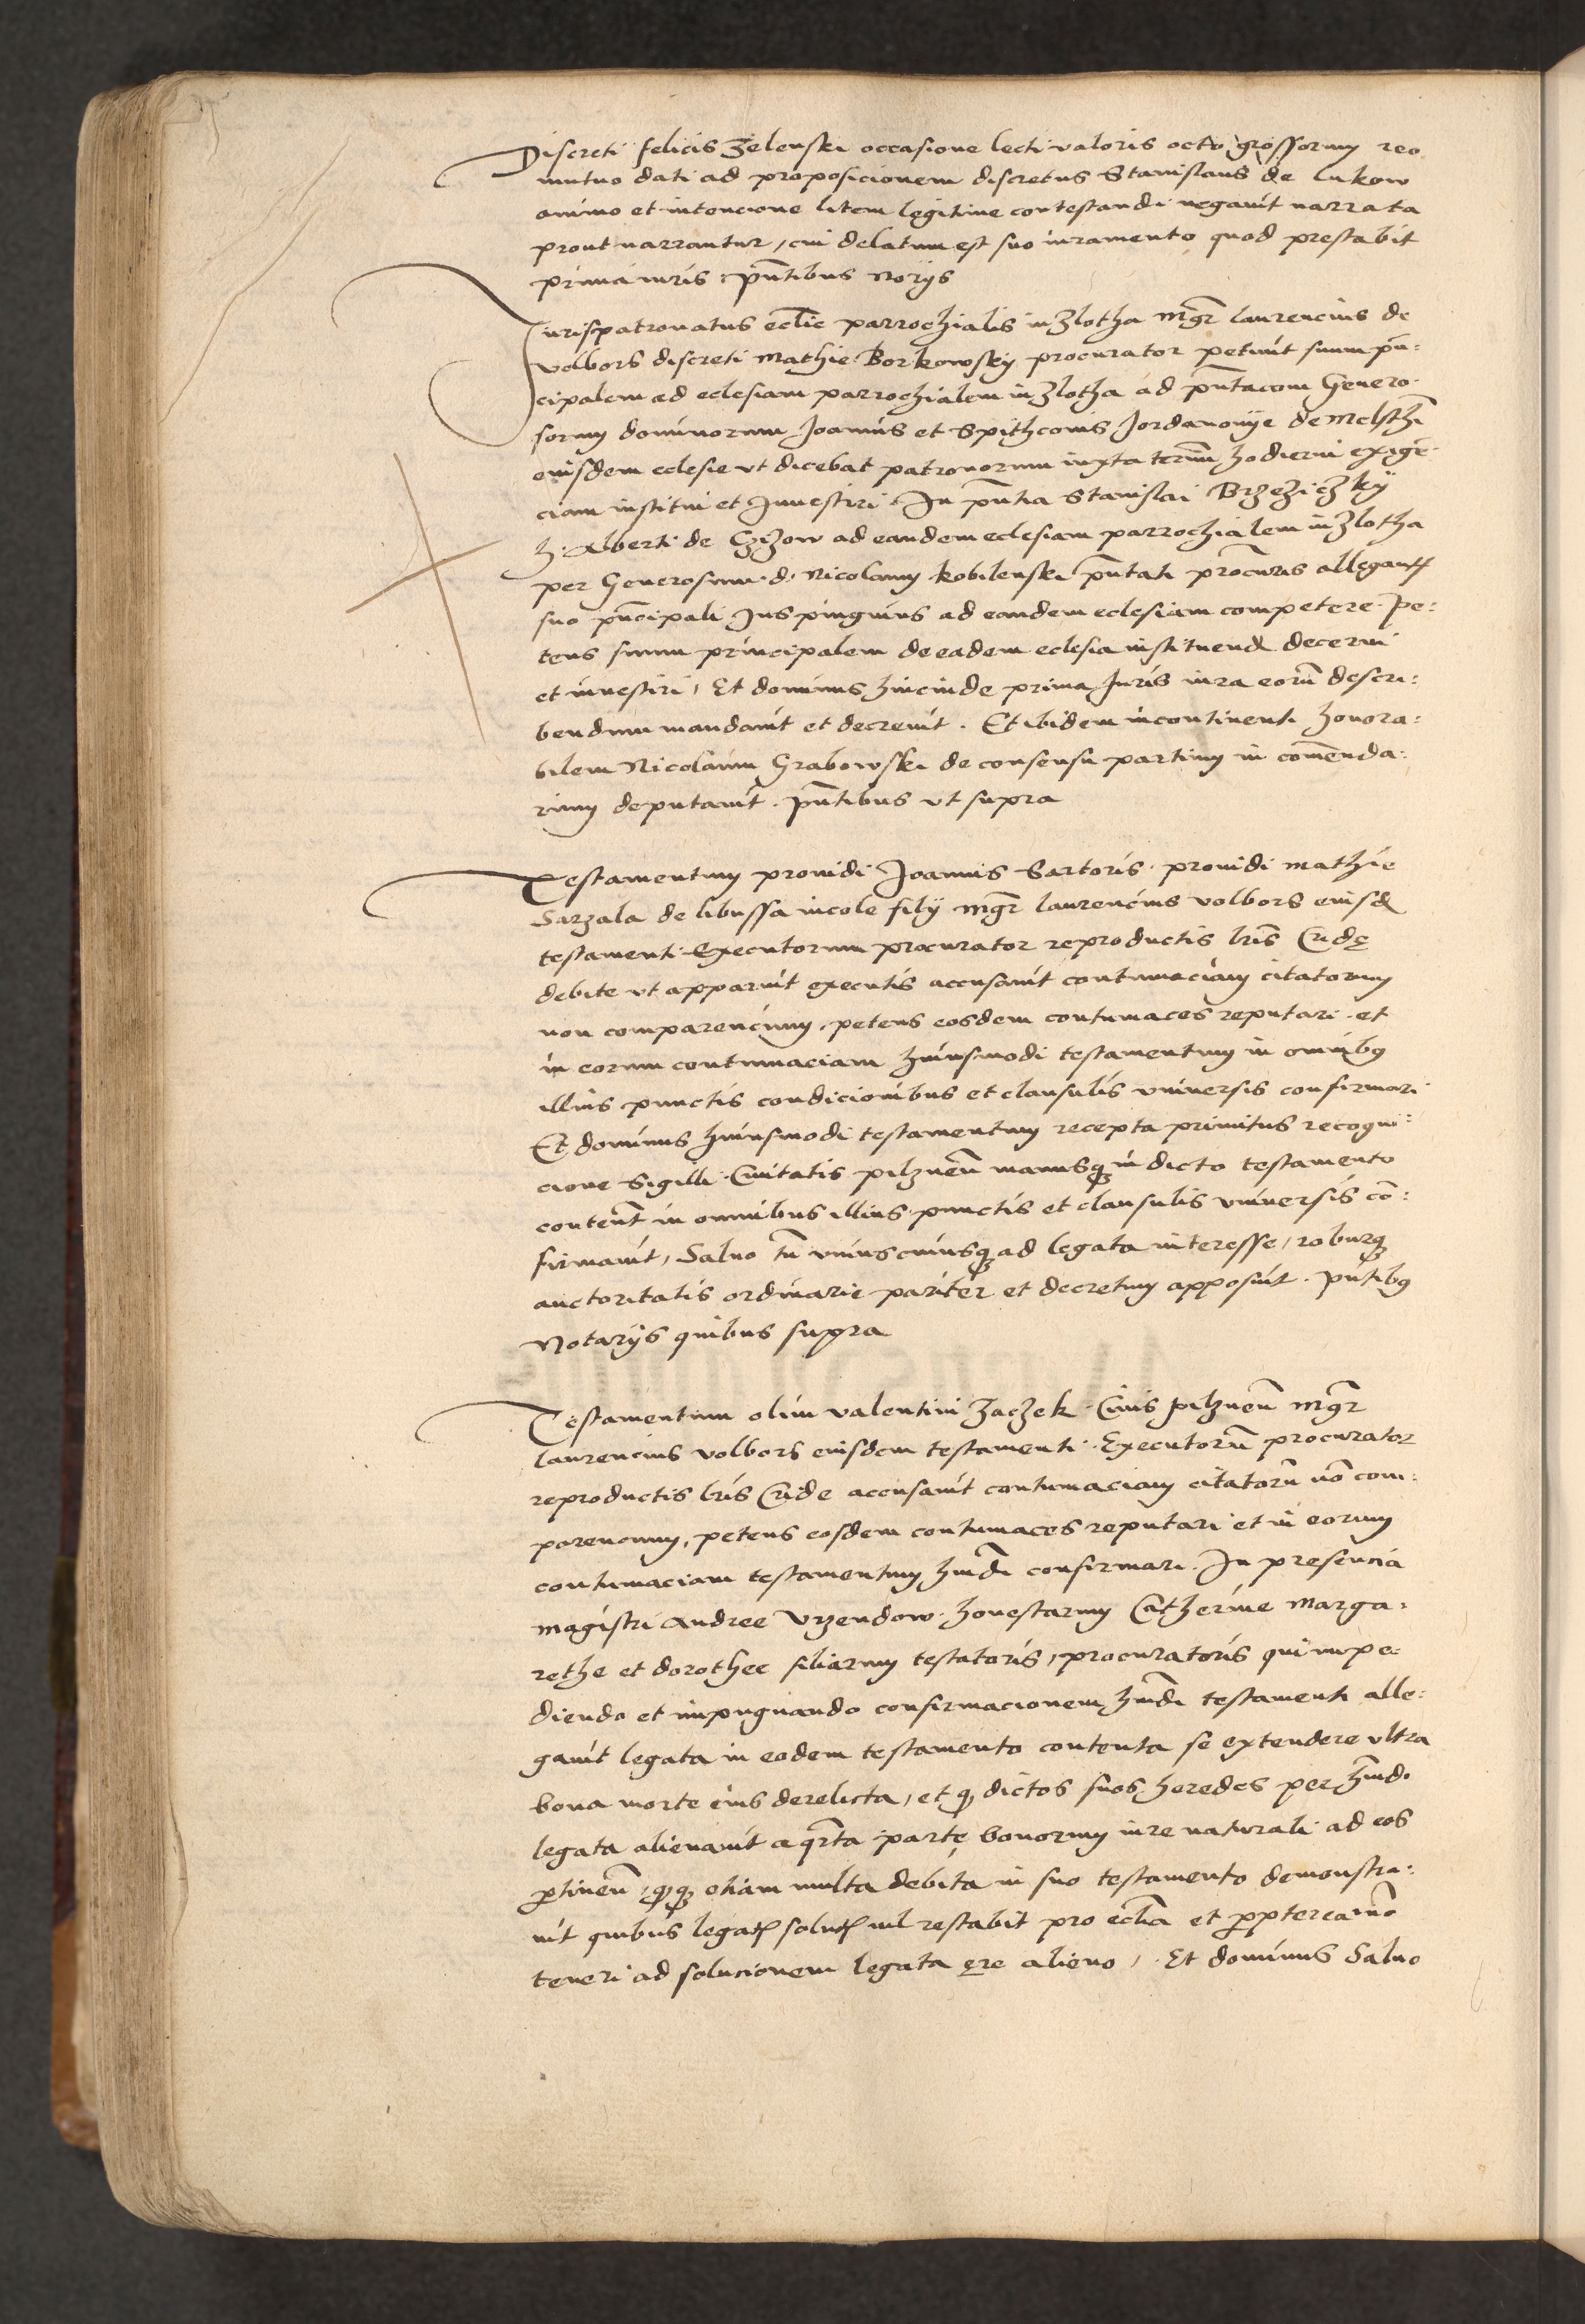 Discreti felicis Zelenski occasione lecti valoris octo grossorum reo
mutuo dati ad proposicionem discretus Stanislaus de lukow
animo et intencione litem legitime contestandi negavit narrata
prout narrantur, cui delatum est suo iuramento quod prestabit
prima iuris pñtibus Norijs
Jurispatronatus eclie parrochialis in Zlotha mgr̃ laurencius de
volbors discreti Mathie Borkowsky procurator petivit suum prin-
cipalem ad eclesiam parrochialem in Zlotha ad pñtacom Genero-
sorum dominorum Joannis et Spithconis Jordanovye de Melsthi
eiusdem eclesie vt dicebat patronorum iuxta termi hodierni exige-
ciam institui et Jnvestiri. Jn pñtia Stanislai Brzeziczky
h. Alberti de Czizow ad eandem eclesiam parrochialem in Zlotha
per Generosum d. Nicolaum kobilenski pñtati procuris allegant
suo pñcipali Jus pinguius ad eandem eclesiam competere. Pe-
tens suum principalem de eadem eclesia instituend decerni
et investiri, Et dominus hincinde prima Juris iura eorum descri-
bendum mandavit et decrevit. Et ibidem incontinenti honora-
bilem Nicolaum Grabowski de consensu partium in comenda-
rium deputavit. pñtibus vt supra
Testamentum providi Joannis Sartoris providi mathie
Sarzala de libussa incole filij mgr̃ laurencius volbors eiusd
testamenti Executorum procurator reproductis lris Cride
debite vt apparuit executis accusavit contumaciam citatorum
non comparencium, petens eosdem contumaces reputari et
in eorum contumaciam huiusmodi testamentum in omnibus
illius punctis condicionibus et clausulis vniversis confirmari
Et dominus huiusmodi testamentum recepta primitus recogni-
cione Sigilli Civitatis pilznen manusq in dicto testamento
content in omnibus illius punctis et clausulis vniversis co-
firmavit, Salvo tn vniuscuiusq ad legata interesse, roburq
auctoritatis ordinarie pariter et decretum apposuit. pntibus
Notarijs quibus supra
Testamentum olim valentini Zaczek Civis pilznen mgr̃
laurencius volbors eiusdem testamenti Executorũ procurator
reproductis lris Cride accusavit contumaciam citatorũ nõ com-
parencium, petens eosdem contumaces reputari et in eorum
contumaciam testamentum huiõdi confirmari. Jn presencia
magistri Andree Vrzendow honestarum Catherine Marga-
rethe et dorothee filiarum testatoris, procuratoris qui impe-
diendo et impugnando confirmacionem huiõdi testamenti alle-
gavit legata in eodem testamento contenta se extendere vltra
bona morte eius derelicta, et q dictos suos heredes per huiõdi
legata alienavit a qrta parte bonorum iure naturali ad eos
ptinen, qq etiam multa debita in suo testamento demonstra-
vit quibus legat solut nil restabit pro eclia et propterea nõ
teneri ad solucionem legata ere alieno, Et dominus Salvo